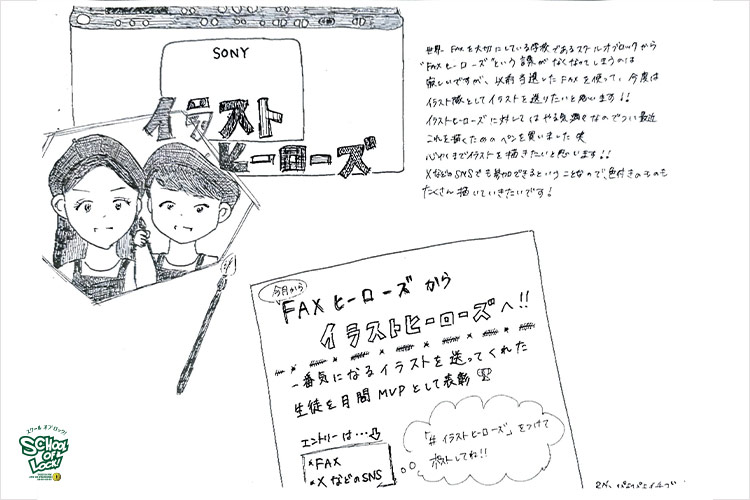 SONY
イラスト
ヒーローズ
世界一FAXを大切にしている学校であるスクールオブロックから
"FAXヒーローズ"という言葉がなくなってしまうのは
寂しいですが、以前当選したFAXを使って、今度は
イラスト職としてイラストを送りたいと思います!!
イラストヒーローズに対してはやる気満々なのでつい最近
これを描くためのペンを買いました笑
心ゆくまでイラストを描きたいと思います!!
XなどのSNSでも参加できるということなので、色付きのものも
たくさん描いていきたいです!
今月から
FAXヒーローズから
イラストヒーローズへ!!
一番気になるイラストを送ってくれた
生徒を月間MVPとして表彰
エントリーは…
*FAX
*XなどのSNS
「#イラストヒーローズ」をつけて
ポストしてね!!
スクールオブロック!
SCHOOL
OF
LOCK!